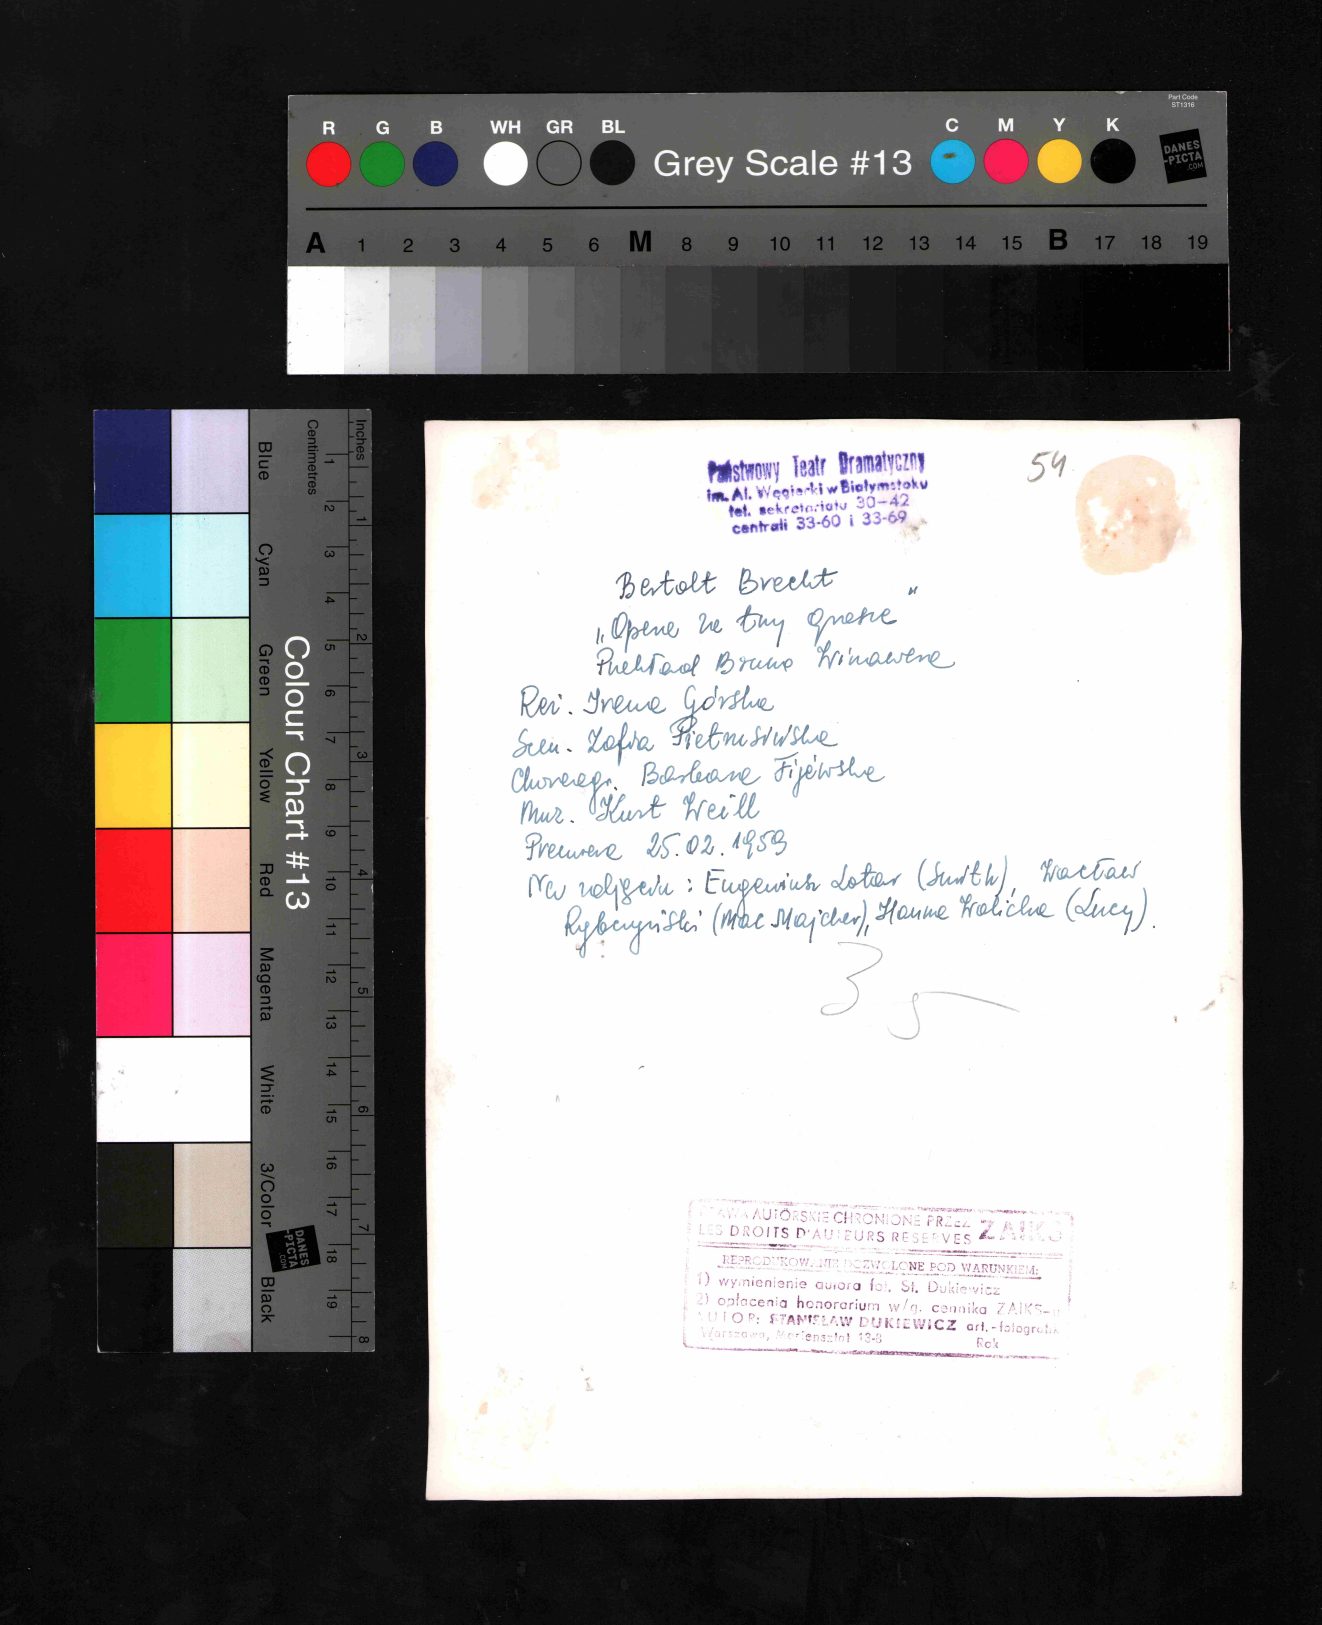 Part Code
ST1316
R G B WH GR BL
Grey Scale #13
C M Y K
DANES
-PICTA
.COM
A 1 2 3 4 5 6 M 8 9 10 11 12 13 14 15 B 17 18 19
Colour Chart #13
Blue Cyan Green Yellow Red Magenta White 3/Color Black
Centimetres
1 2 3 4 5 6 7 8 9 10 11 12 13 14 15 16 17 18 19
Inches
1 2 3 4 5 6 7 8
DANES
-PICTA
.COM
Państwowy Teatr Dramatyczny
im. Al. Węgierki w Białymstoku
tel. sekretariatu 30-42
centrali 33-60 i 33-69
54
Bertolt Brecht
„Opera za trzy grosze"
Przekład Bruna Winawera
Reż. Irena Górska
Scen. Zofia Pietrusińska
Choreogr. Barbara Fijewska
Muz. Kurt Weill
Premiera 25.02.1959
Na zdjęciu: Eugeniusz Lotar (Smith), Wacław
Rybczyński (Mac Majcher), Hanna Walicka (Lucy).
PRAWA AUTORSKIE CHRONIONE PRZEZ ZAIKS
LES DROITS D'AUTEURS RESERVES
REPRODUKOWANIE DOZWOLONE POD WARUNKIEM:
1) wymienienie autora fot. St. Dukiewicz
2) opłacenia honorarium w/g. cennika ZAIKS-u
AUTOR: STANISŁAW DUKIEWICZ art.-fotografik
Warszawa, Mariensztat 13-8 Rok